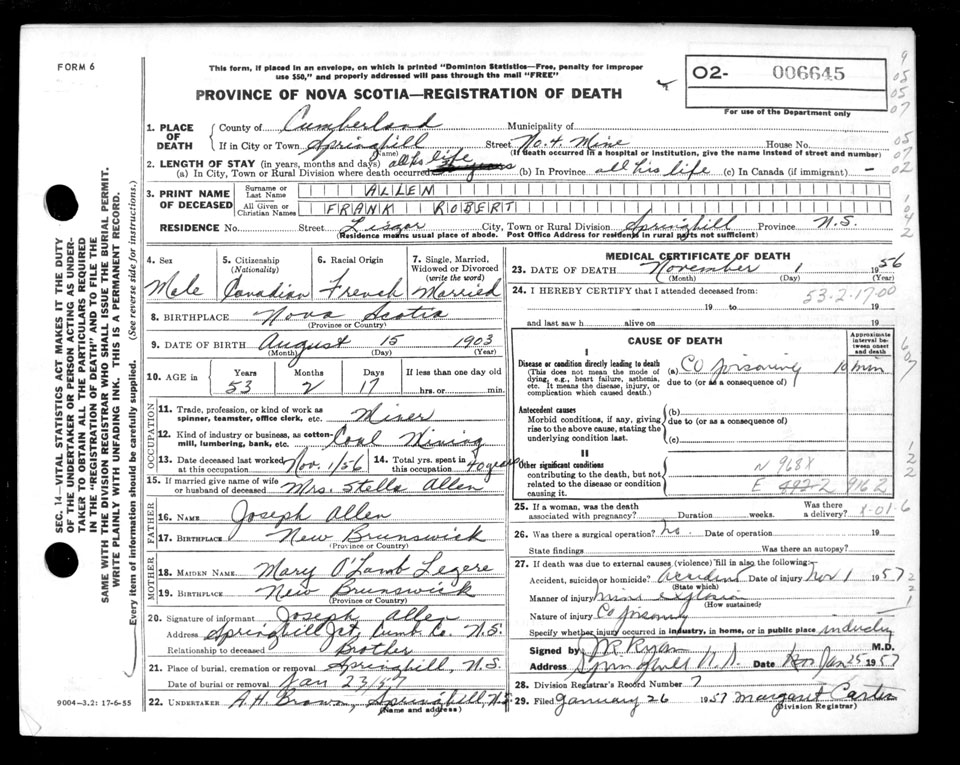 FORM 6
This form, if placed in an envelope, on which is printed "Dominion Statistics—Free, penalty for improper
use $50," and properly addressed will pass through the mail "FREE"
02- 006645
For use of the Department only
PROVINCE OF NOVA SCOTIA—REGISTRATION OF DEATH
1. PLACE OF DEATH { County of Cumberland Municipality of
If in City or Town Springhill (Name) Street No. 4. Mine House No.
(If death occurred in a hospital or institution, give the name instead of street and number)
2. LENGTH OF STAY (in years, months and days) all his life
(a) In City, Town or Rural Division where death occurred years (b) In Province all his life (c) In Canada (if immigrant) —
3. PRINT NAME OF DECEASED { Surname or Last Name ALLEN
All Given or Christian Names FRANK ROBERT
RESIDENCE No. Street Lisgar City, Town or Rural Division Springhill Province N.S.
(Residence means usual place of abode. Post Office Address for residents in rural parts not sufficient)
4. Sex Male
5. Citizenship (Nationality) Canadian
6. Racial Origin French
7. Single, Married, Widowed or Divorced (write the word) Married
8. BIRTHPLACE Nova Scotia
(Province or Country)
9. DATE OF BIRTH August 15 1903
(Month) (Day) (Year)
10. AGE in { Years 53 Months 2 Days 17 If less than one day old
hrs. or min.
OCCUPATION
11. Trade, profession, or kind of work as spinner, teamster, office clerk, etc. Miner
12. Kind of industry or business, as cotton-mill, lumbering, bank, etc. Coal Mining
13. Date deceased last worked at this occupation Nov. 1/56 14. Total yrs. spent in this occupation 40 years
15. If married give name of wife or husband of deceased Mrs. Stella Allen
FATHER
16. NAME Joseph Allen
17. BIRTHPLACE New Brunswick
(Province or Country)
MOTHER
18. MAIDEN NAME Mary O'Lamb Legere
19. BIRTHPLACE New Brunswick
(Province or Country)
20. Signature of informant Joseph Allen
Address Springhill Jct, Cumb Co. N.S.
Relationship to deceased Brother
21. Place of burial, cremation or removal Springhill, N.S.
Date of burial or removal Jan 23/57
22. UNDERTAKER A.H. Brown, Springhill, N.S.
(Name and address)
9004—3.2: 17-6-55
MEDICAL CERTIFICATE OF DEATH
23. DATE OF DEATH November 1 1956
(Month) (Day)
24. I HEREBY CERTIFY that I attended deceased from:
53-2-17-00
19 to 19
and last saw h alive on 19
CAUSE OF DEATH
Approximate interval between onset and death
I
Disease or condition directly leading to death
(This does not mean the mode of dying, e.g., heart failure, asthenia, etc. It means the disease, injury, or complication which caused death.)
(a) CO poisoning 10 min
due to (or as a consequence of)
Antecedent causes
Morbid conditions, if any, giving rise to the above cause, stating the underlying condition last.
(b)
due to (or as a consequence of)
(c)
II
Other significant conditions
contributing to the death, but not related to the disease or condition causing it.
N 968X
916 2
25. If a woman, was the death associated with pregnancy? Duration weeks. Was there a delivery? X-01-6
26. Was there surgical operation? No. Date of operation 19
State findings Was there an autopsy?
27. If death was due to external causes (violence) fill in also the following:—
Accident, suicide or homicide? Accident (State which) Date of injury Nov 1 1957
Manner of injury mine explosion (How sustained)
Nature of injury Co poisoning
Specify whether injury occurred in industry, in home, or in public place industry
Signed by Ryan M.D.
Address Springhill N.S. Date Jan 25 1957
28. Division Registrar's Record Number 7
29. Filed January 26 1957 Margaret Carter
(Division Registrar)
SEC. 14—VITAL STATISTICS ACT MAKES IT THE DUTY
OF THE UNDERTAKER OR PERSON ACTING AS UNDER-
TAKER TO OBTAIN ALL THE PARTICULARS REQUIRED
IN THE "REGISTRATION OF DEATH" AND TO FILE THE
SAME WITH THE DIVISION REGISTRAR WHO SHALL ISSUE THE BURIAL PERMIT.
WRITE PLAINLY WITH UNFADING INK. THIS IS A PERMANENT RECORD.
Every item of information should be carefully supplied. (See reverse side for instructions.)